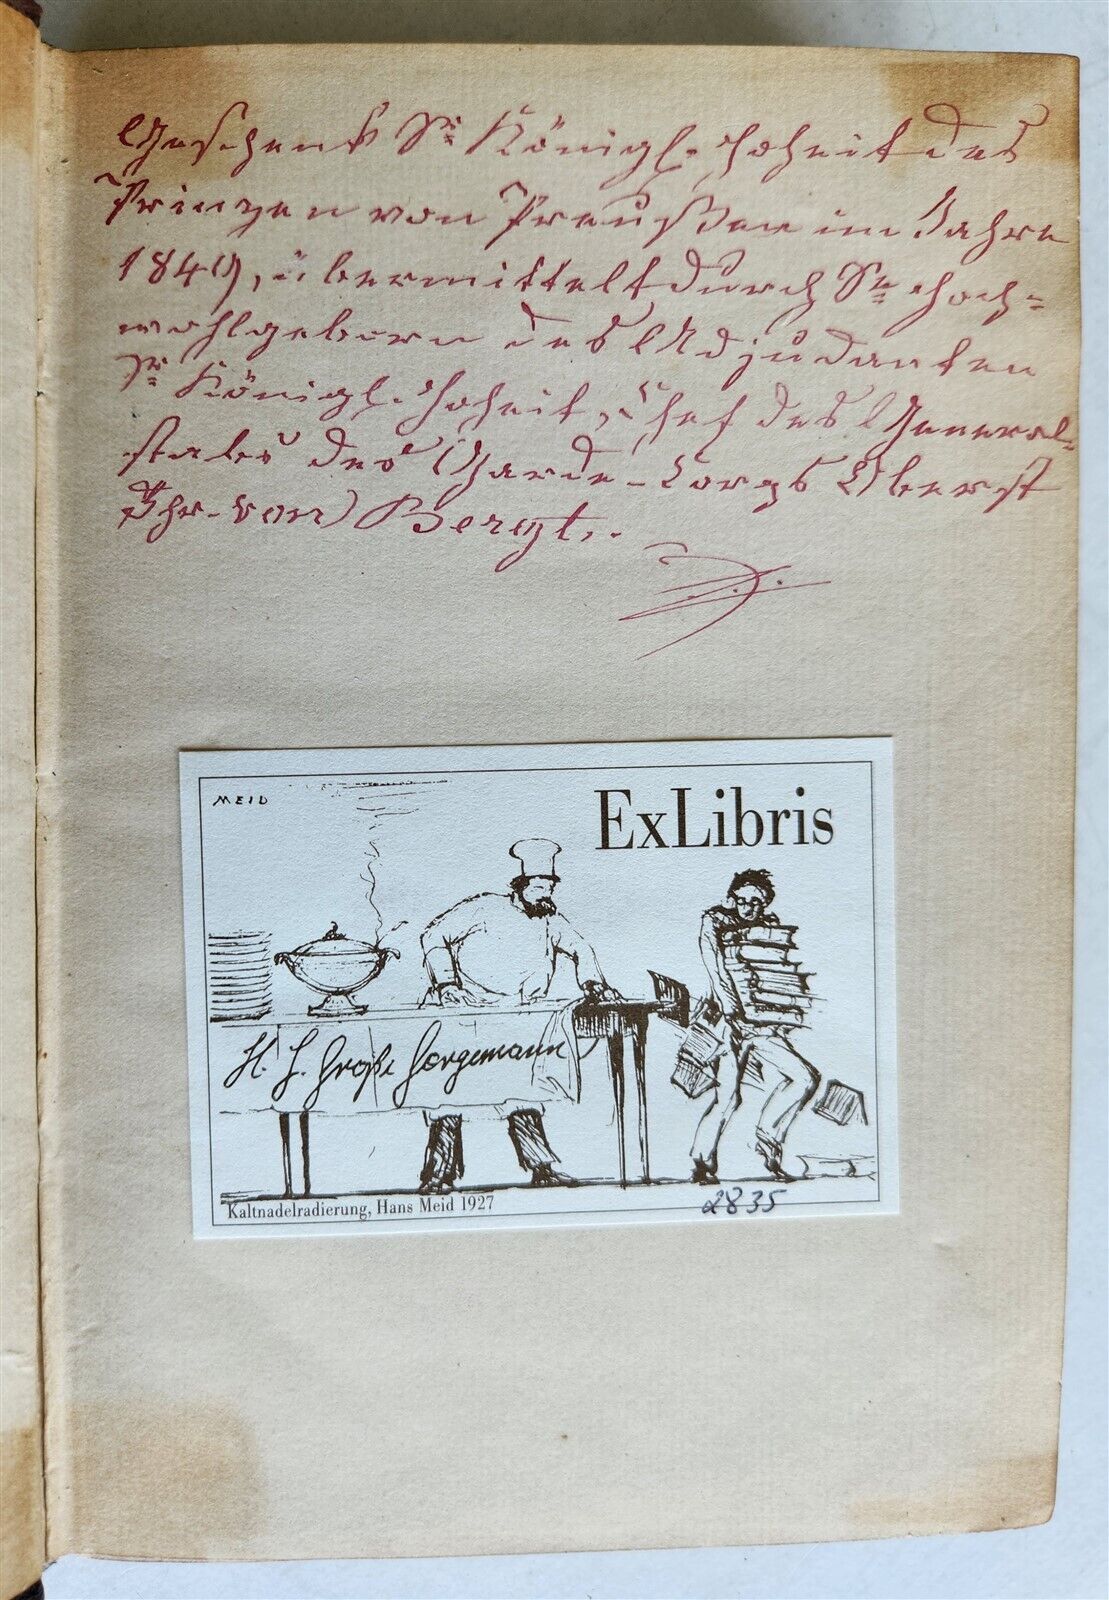 Geschenk Sr. Königl. Hoheit des
Prinzen von Preußen im Jahre
1849, übermittelt durch Sr. Hoch=
wohlgeborn des Adjudanten
Sr. Königl. Hoheit, Chef des General=
stabs des Garde-Corps Oberst
Fhr. von
MEID
ExLibris
H. J. Große Jorgemann
Kaltnadelradierung, Hans Meid 1927
2835